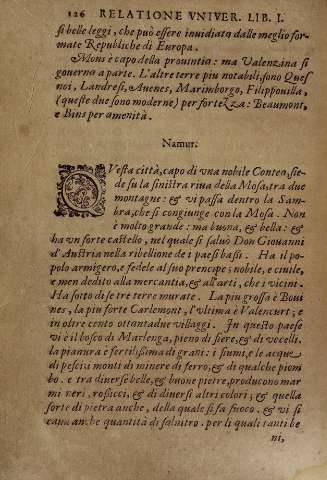 126 RELATIONE VNIVER. LIB. I.
si belle leggi, che può essere inuidiata dalle meglio for-
mate Republiche di Europa.
Mons è capo della prouintia: ma Valenzina si
gouerna a parte. L'altre terre piu notabili, sono Ques
noi, Landresi, Auenes, Marimborgo, Filippouilla,
(queste due sono moderne) per fortezza: Beaumont,
e Bins per amenità.
Namur.
QVesta città, capo di vna nobile Contea, sie-
de su la sinistra riua della Mosa, tra due
montagne: & vi passa dentro la Sam-
bra, che si congiunge con la Mosa. Non
è molto grande: ma buona, & bella: &
ha vn forte castello, nel quale si saluò Don Giouanni
d'Austria nella ribellione de i paesi bassi. Ha il po-
polo armigero, e fedele al suo prencipe: nobile, e ciuile,
e men dedito alla mercantia, & all'arti, che i vicini.
Ha sotto di se tre terre murate. La piu grossa è Boui
nes, la piu forte Carlemont, l'vltima è Valencurt; e
in oltre cento ottantadue villaggi. In questo paese
vi è il bosco di Marlenga, pieno di fiere, & di vccelli.
la pianura è fertilissima di grani: i fiumi, e le acque
di pesci: i monti di minere di ferro, & di qualche piom
bo. e tra diuerse belle, & buone pietre, producono mar
mi neri, rosacci, & di diuersi altri colori; & quella
sorte di pietra anche, della quale si fa fuoco. & vi si
caua anche quantità di salnitro. per li quali tanti be
ni,